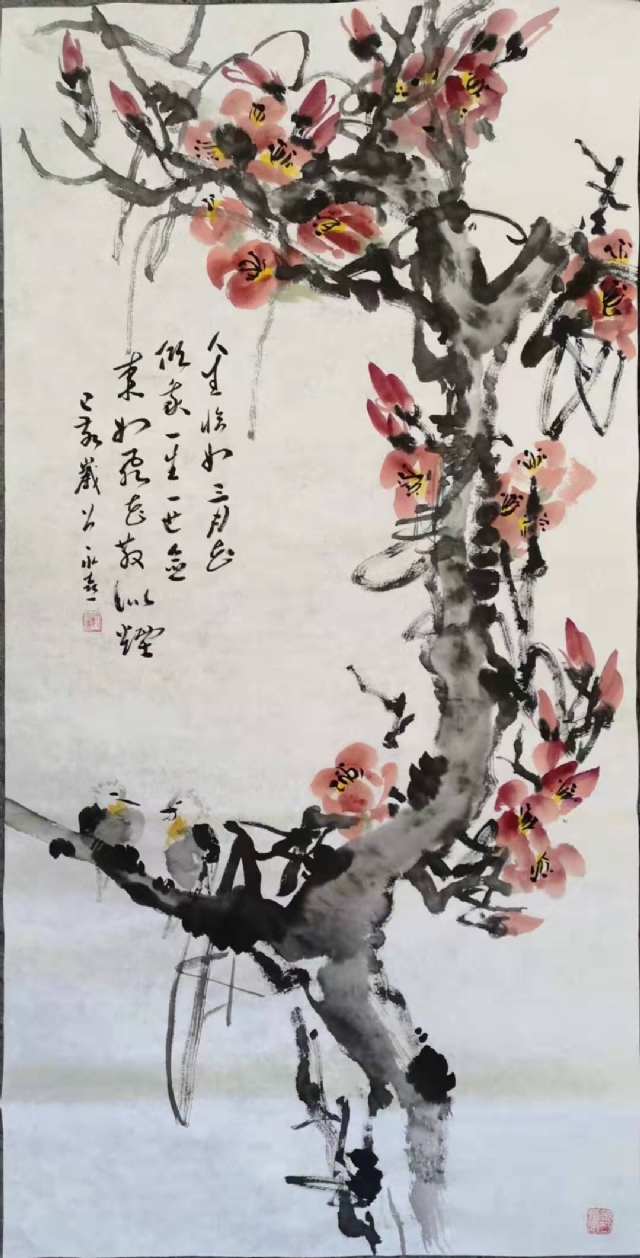 人生恰如三月花
倾我一生一世念
来如飞花散似煙
己亥歲 永